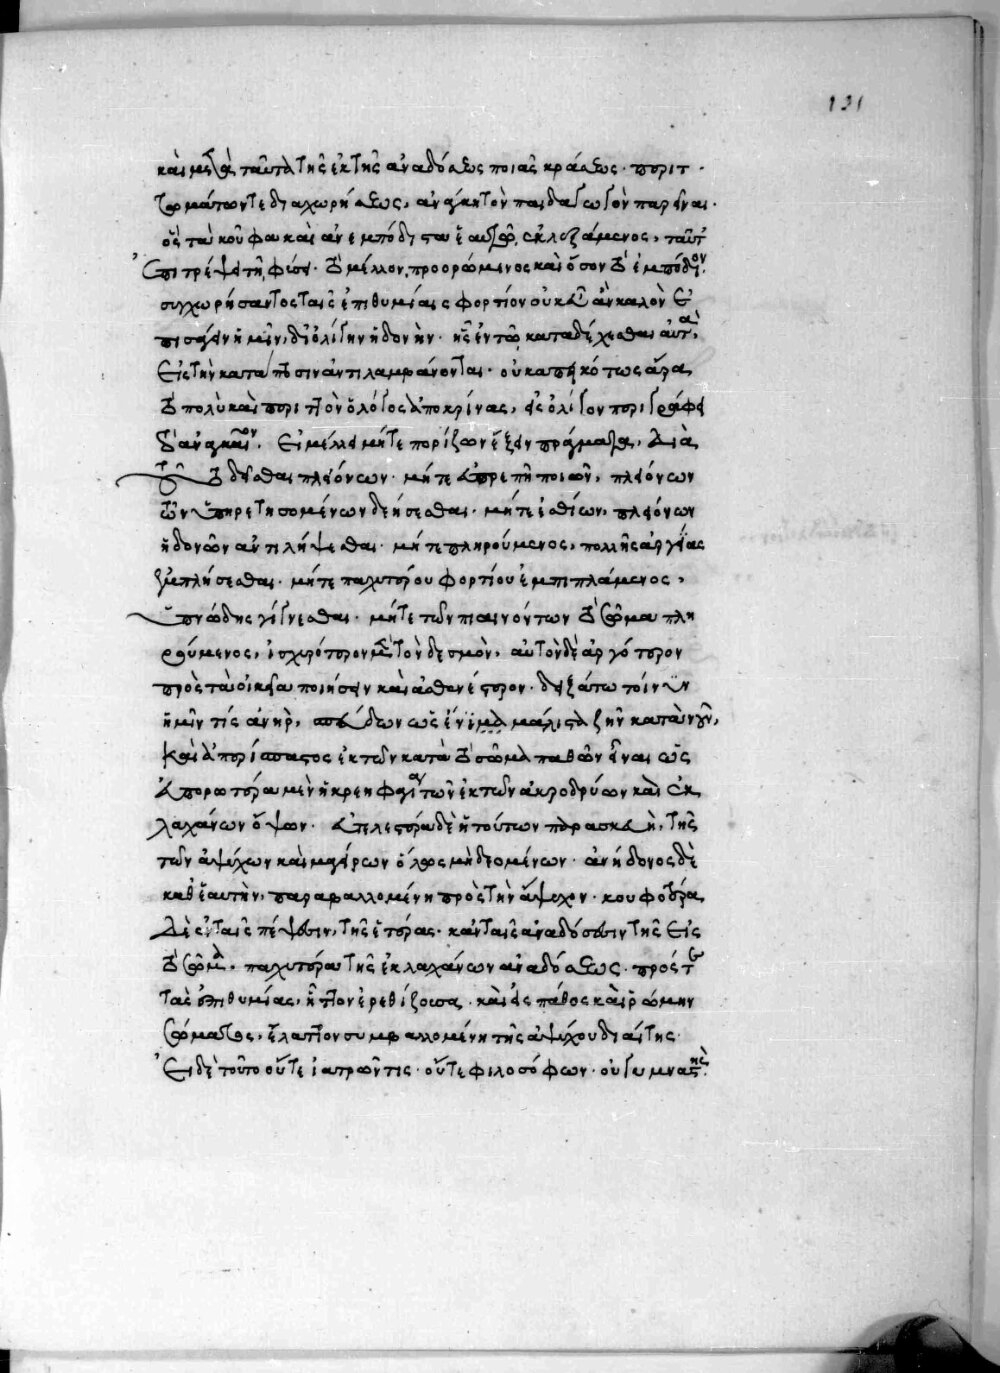 131
καὶ μετὰ ταῦτα τῆς ἐκ τῆς ἀναδόσεως ποιᾶς κράσεως· περιτ
τωμάτων τε διαχωρήσεως, ἀνάγκη τὸν παιδαγωγὸν παρεῖναι·
ὃς τὰ κοῦφα καὶ ἀνεμπόδιστα ἑαυτῷ ἐκλεξάμενος, ταῦτ
ἐπιτρέψει τῇ φύσει· τὸ μέλλον προορώμενος καὶ ὅσον τὸ ἐμπόδιον·
συγχωρήσαντος ταῖς ἐπιθυμίαις φορτίον οὐκ εὐάγκαλον ἐ
πισάγειν ἡμῖν, δι' ὀλίγην ἡδονὴν τῆς ἐν τῷ καταδέχεσθαι αὐτὰ,
εἰς τὴν κατάποσιν ἀντιλαμβάνονται· οὐκ ἀπεικότως ἄρα
τὸ πολὺ καὶ περιττὸν ὁ λόγος ἀποκρίνας, εἰς ὀλίγον περιγράφει
τὸ ἀναγκαῖον. εἰ μέλλει μήτε πορίζων ἕξειν πράγματα, διὰ
τὸ δεῖσθαι πλειόνων· μήτε εὐπρεπῆ ποιῶν, πλειόνων
τῶν ὑπηρετησομένων δεήσεσθαι· μήτε ἐσθίων, πλειόνων
ἡδονῶν ἀντιλήψεσθαι· μήτε πληρούμενος, πολλῆς ἀργίας
ἐμπλήσεσθαι· μήτε παχυτέρου φορτίου ἐμπιπλάμενος,
ὑπνώδης γίγνεσθαι· μήτε τῶν πιαινόντων τὸ σῶμα πλη
ρούμενος, ἰσχυρότερον μὲν τὸν δεσμὸν, αὐτὸν δὲ ἀργότερον
πρὸς τὰ οἰκεῖα ποιήσειν καὶ ἀσθενέστερον· δειξάτω τοίνυν
ἡμῖν τίς ἀνὴρ, σπεύδων ὡς ἔνι μα μάλιστα ζῆν κατὰ νοῦν,
καὶ ἀπερίσπαστος ἐκ τῶν κατὰ τὸ σῶμα παθῶν εἶναι ὡς
εὐπορωτέρα μὲν ἡ κρεηφαγία τῶν ἐκ τῶν ἀκροδρύων καὶ ἐκ
λαχάνων ὄψων· εὐτελεστέρα δὲ ἡ τούτων παρασκευὴ, τῆς
τῶν ἀψύχων καὶ μαγείρων ὅλως μὴ δεομένων· ἀνήδονος δὲ
καθ' ἑαυτὴν, παραβαλλομένη πρὸς τὴν ἄψυχον· κουφοτέρα
δὲ ἐν ταῖς πέψεσιν, τῆς ἑτέρας· κἀν ταῖς ἀναδόσεσιν τῆς εἰς
τὸ σῶμα, παχυτέρα τῆς ἐκ λαχάνων ἀναδόσεως· πρός τε
τὰς ἐπιθυμίας, ἧττον ἐρεθίζουσα· καὶ εἰς πάθος καὶ ῥώμην
σώματος, ἔλαττον συμβαλλομένη τῆς ἀψύχου διαίτης·
εἰ δὲ τοῦτο οὔτε ἰατρῶν τις· οὔτε φιλοσόφων· οὐ γυμναστὴς·